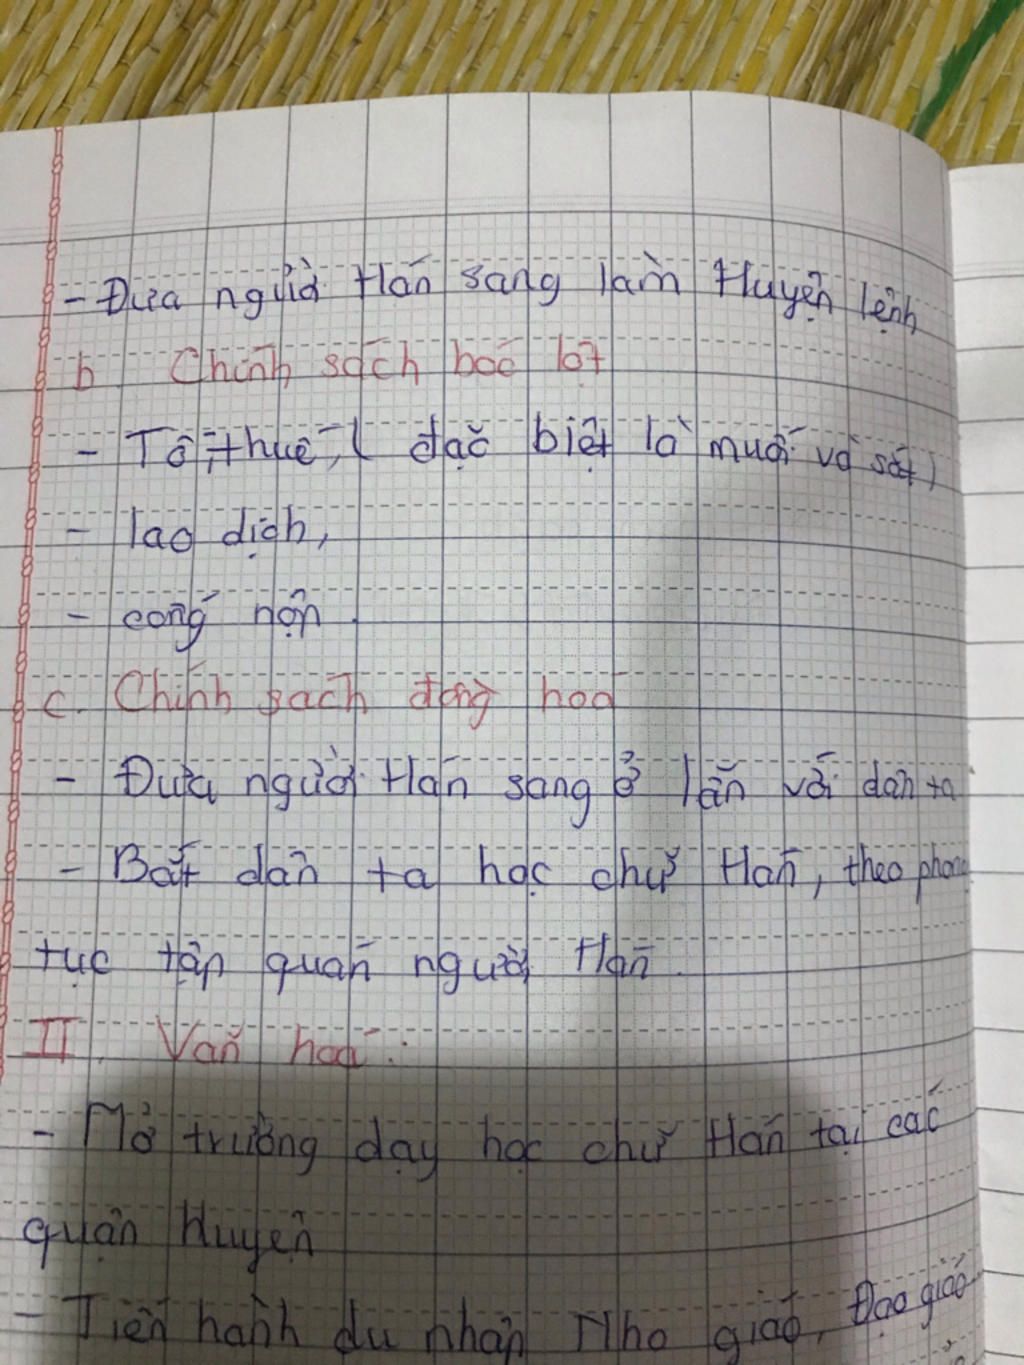 - Đưa người Hán sang làm Huyện lệnh
b. Chính sách bóc lột
- Tô, thuế, ( đặc biệt là muối và sắt)
- lao dịch,
- cống nộp.
c. Chính sách đồng hoá
- Đưa người Hán sang ở lẫn với dân ta
- Bắt dân ta học chữ Hán, theo phong
tục tập quán người Hán.
II. Văn hoá:
- Mở trường dạy học chữ Hán tại các
quận Huyện
- Tiến hành du nhập Nho giáo, Đạo giáo